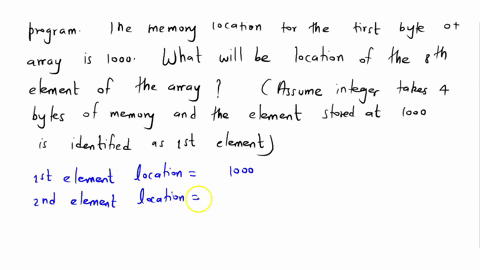 program. The memory location for the first byte of
array is 1000. What will be location of the 8th
element of the array? (Assume integer takes 4
bytes of memory and the element stored at 1000
is identified as 1st element)
1st element location = 1000
2nd element location =